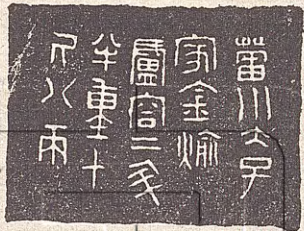 菑川大子
家金
盧容二斗
半重十
斤八兩